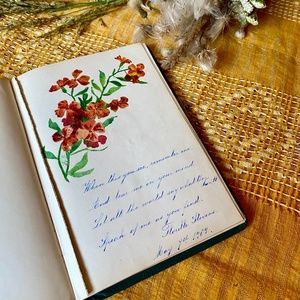 When this you see, remember me
And bear me in your mind
Let all the world say what they will
Speak of me as you find.
Stevens.
May 7th 1903.